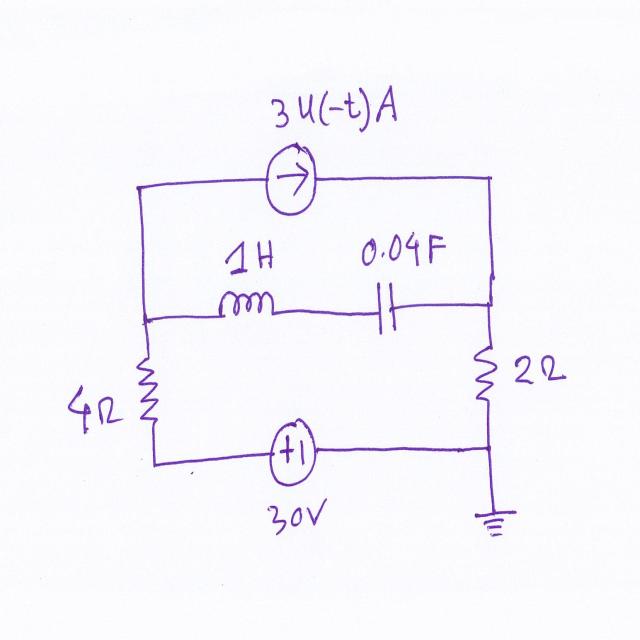 3u(-t)A
1H
0.04F
4Ω
2Ω
+ι
30V